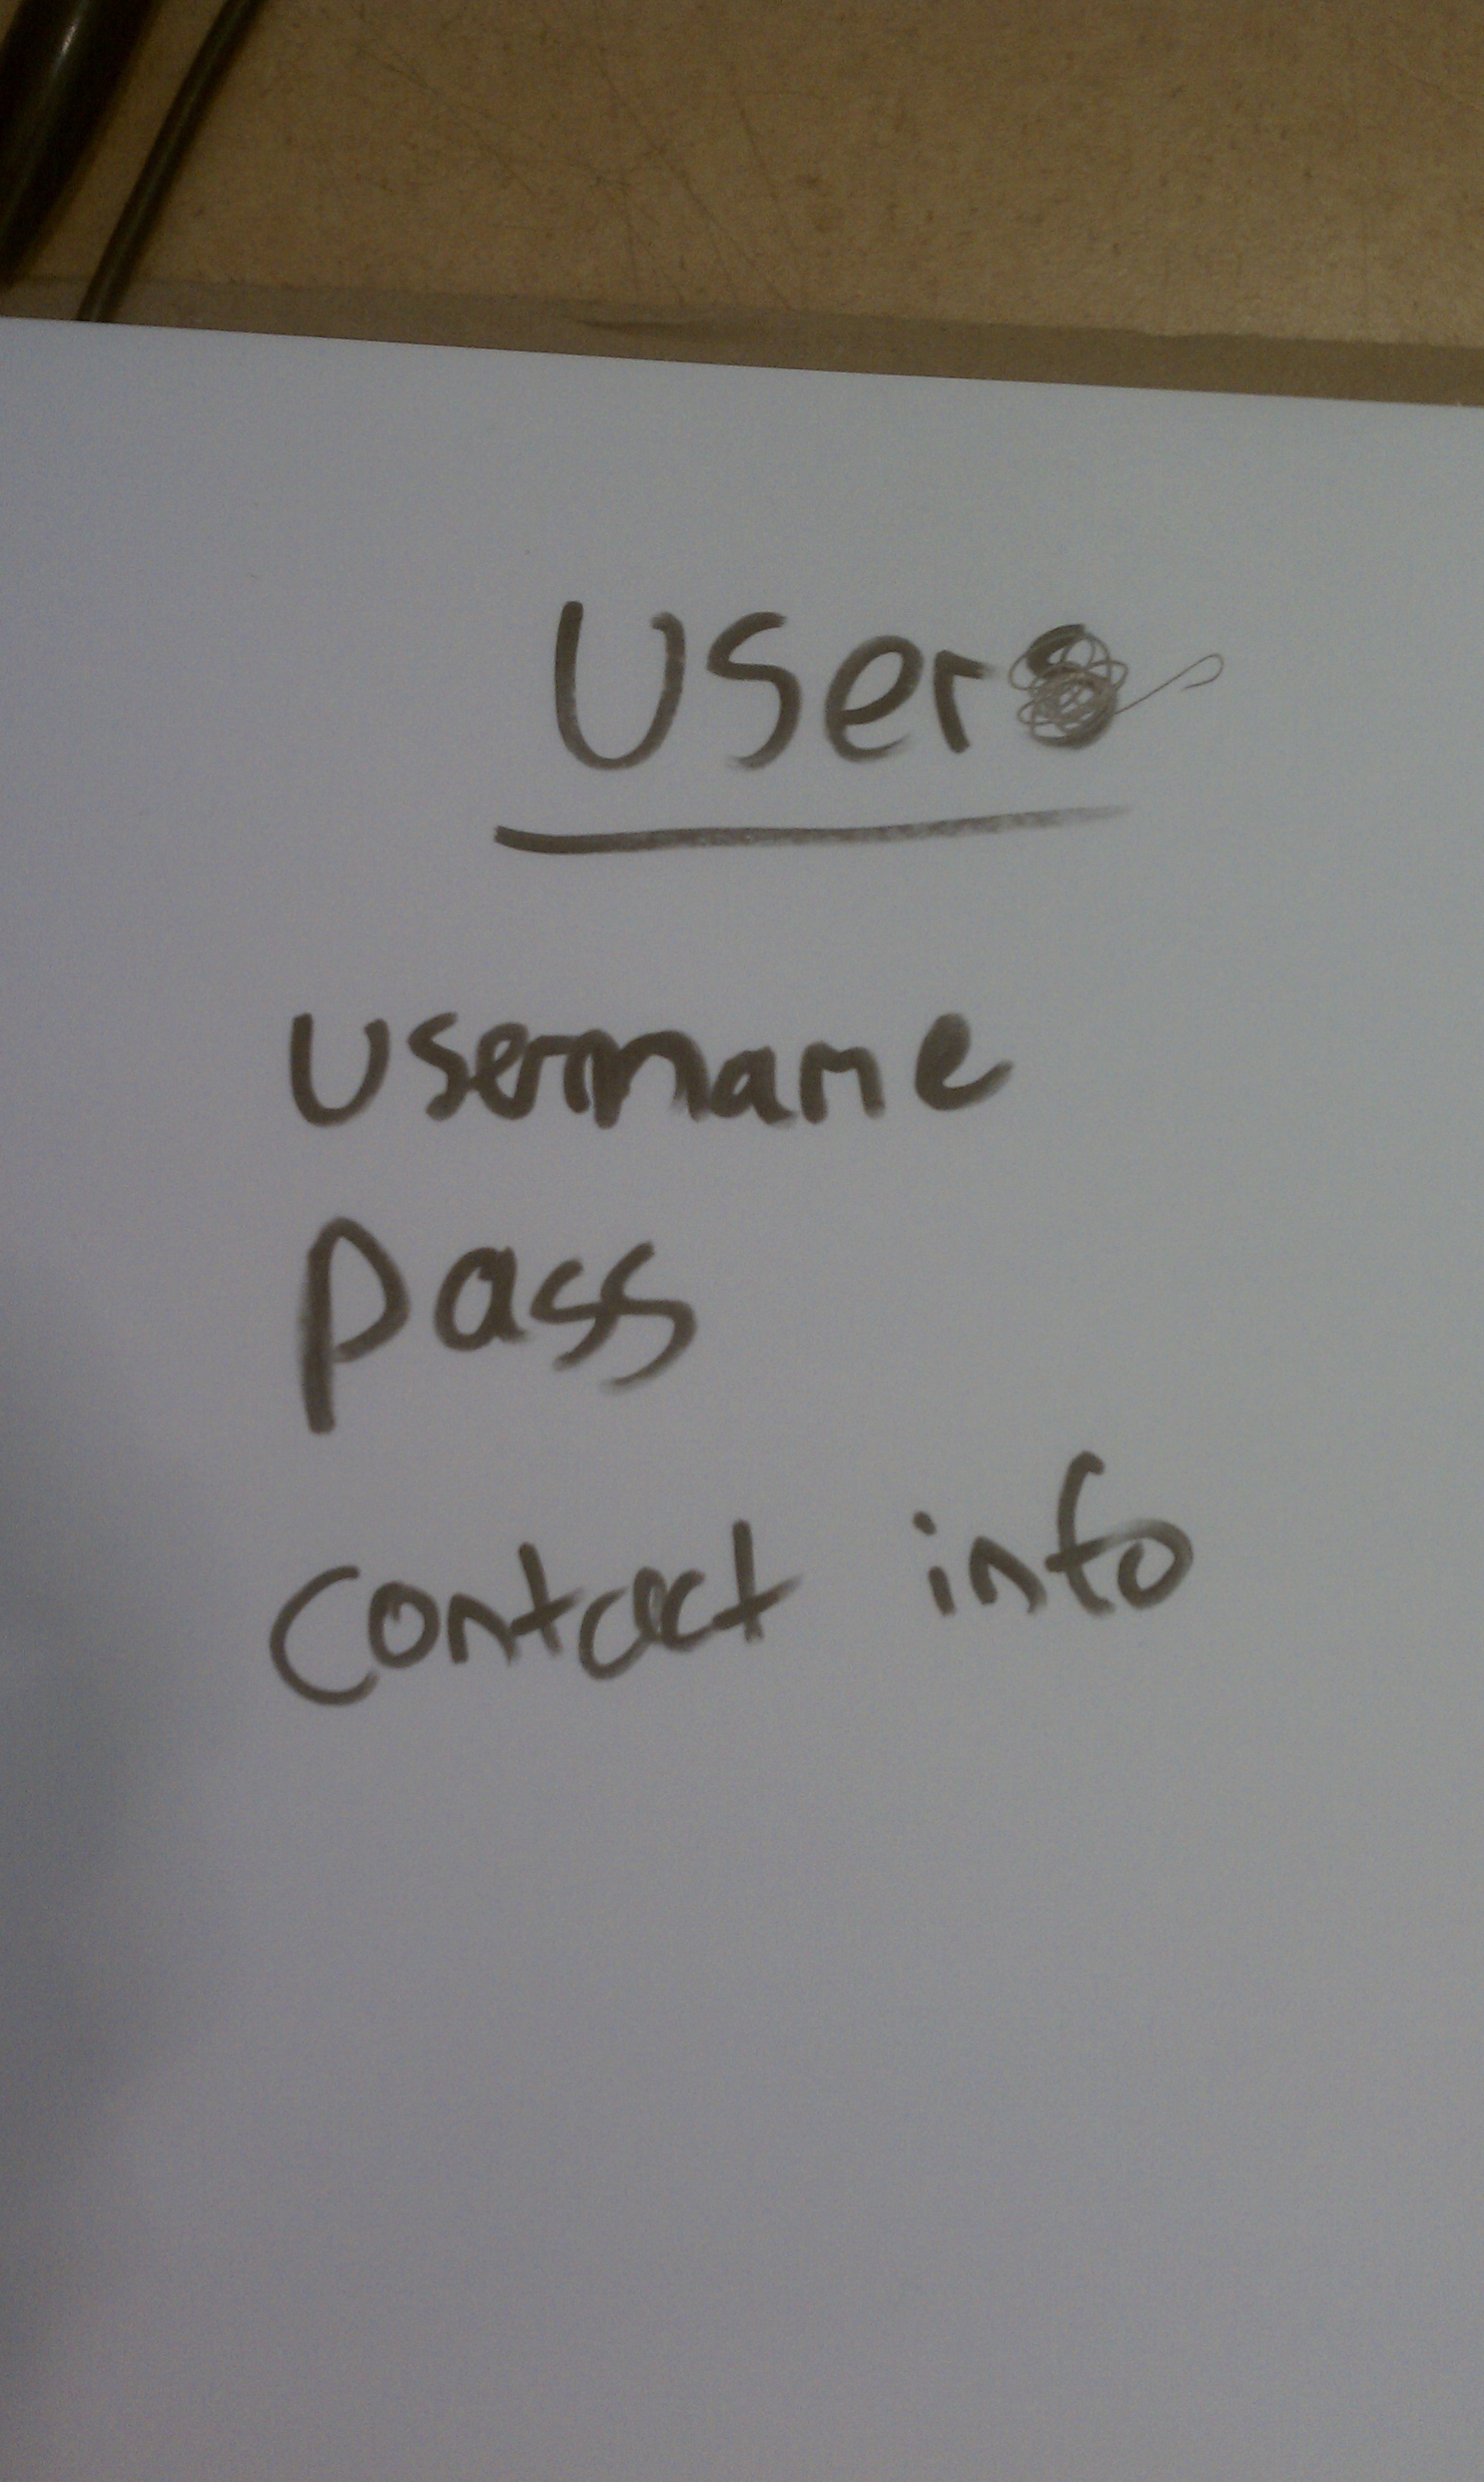 User
username
pass
contact info